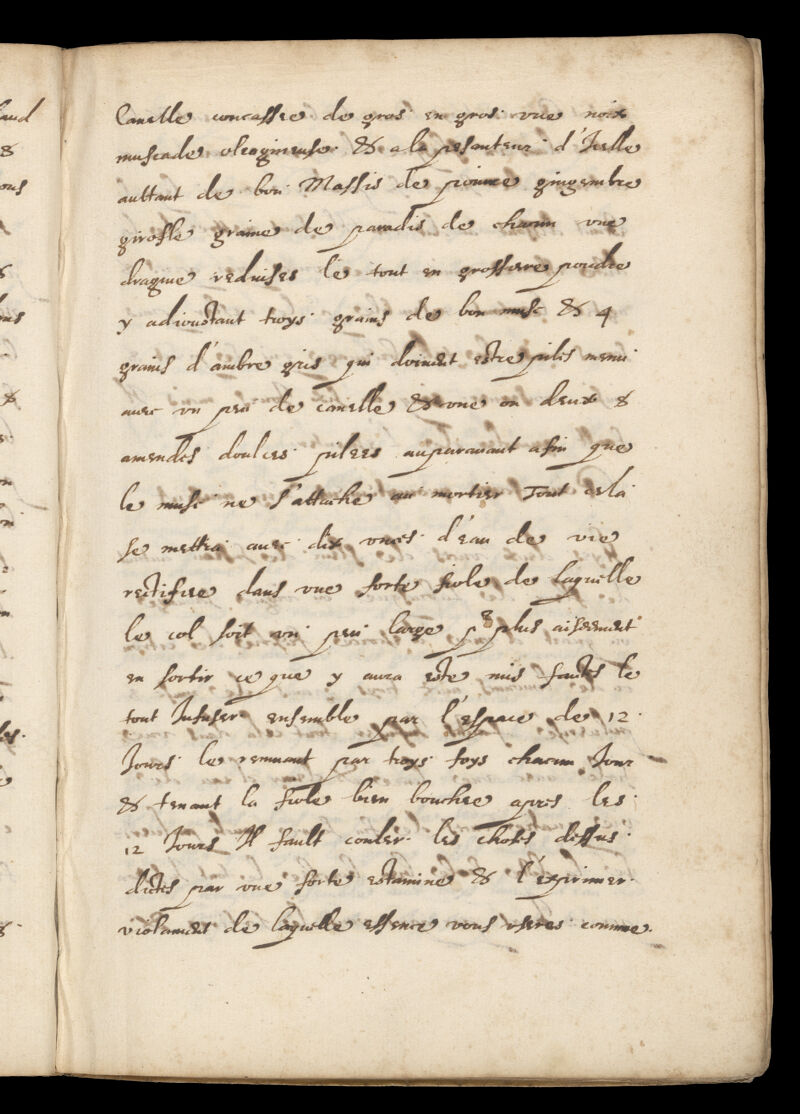 Canelle concassee de gros en gros une noix
muscade oleagineuse & a la pesanteur d'Icelle
aultant de bon Massis de poivre gingembre
girofle graine de paradis de chacun une
dragme reduises le tout en grossiere poudre
y adioustant troys grains de bon musc & 4
grains d'ambre gris qui doivent estre pilés menu
avec un peu de canelle & une ou deux
amendes doulces pilees auparavant afin que
le musc ne s'attache au mortier Tout cela
se mettra avec dix onces d'eau de vie
rectifiee dans une forte fiole de laquelle
le col soit un peu large pr plus aiseement
en sortir ce que y aura este mis faites le
tout Infuser ensemble par l'espace de 12
Jours le remuant par troys foys chacun Jour
& tenant la fiole bien bouchee apres les
12 Jours Il fault couler les choses dessus
dictes par une forte estamine & l'exprimer
violament de laquelle essence vous useres comme